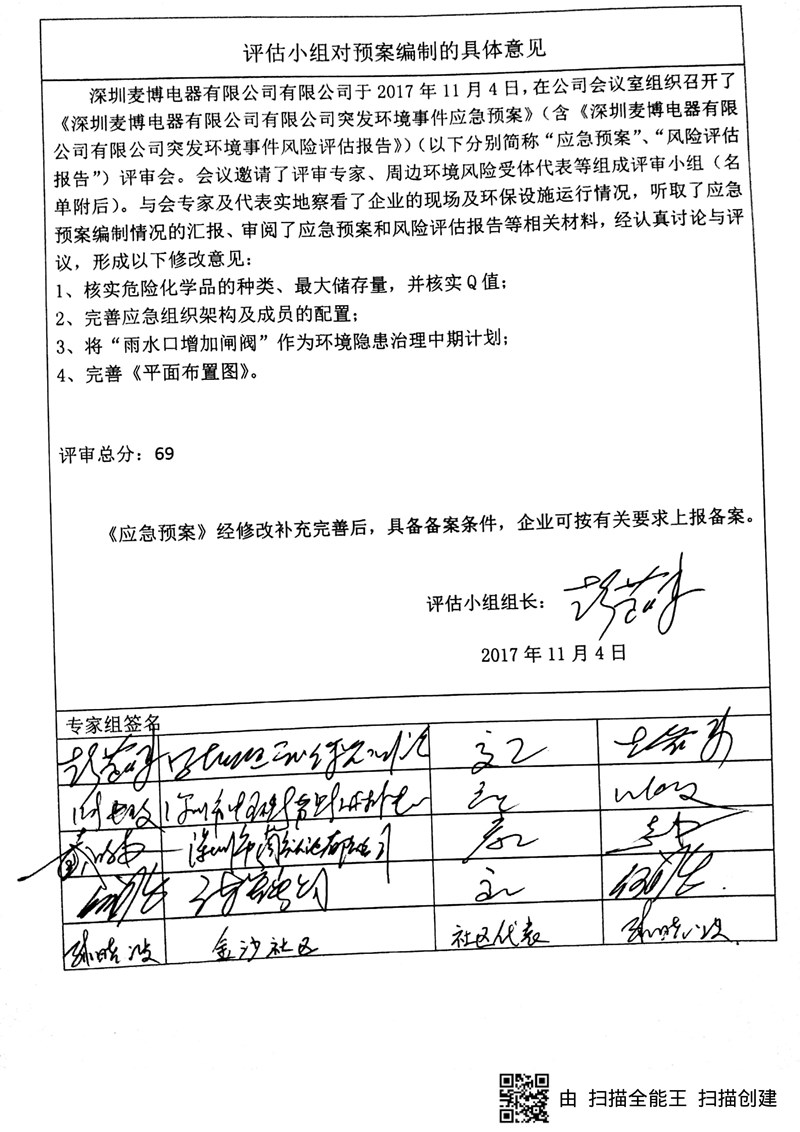 评估小组对预案编制的具体意见
深圳麦博电器有限公司有限公司于 2017 年 11 月 4 日，在公司会议室组织召开了
《深圳麦博电器有限公司有限公司突发环境事件应急预案》（含《深圳麦博电器有限
公司有限公司突发环境事件风险评估报告》）（以下分别简称“应急预案”、“风险评估
报告”）评审会。会议邀请了评审专家、周边环境风险受体代表等组成评审小组（名
单附后）。与会专家及代表实地察看了企业的现场及环保设施运行情况，听取了应急
预案编制情况的汇报、审阅了应急预案和风险评估报告等相关材料，经认真讨论与评
议，形成以下修改意见：
1、核实危险化学品的种类、最大储存量，并核实 Q 值；
2、完善应急组织架构及成员的配置；
3、将“雨水口增加闸阀”作为环境隐患治理中期计划；
4、完善《平面布置图》。
评审总分：69
《应急预案》经修改补充完善后，具备备案条件，企业可按有关要求上报备案。
评估小组组长：
2017 年 11 月 4 日
专家组签名
金沙社区 社区代表
由 扫描全能王 扫描创建